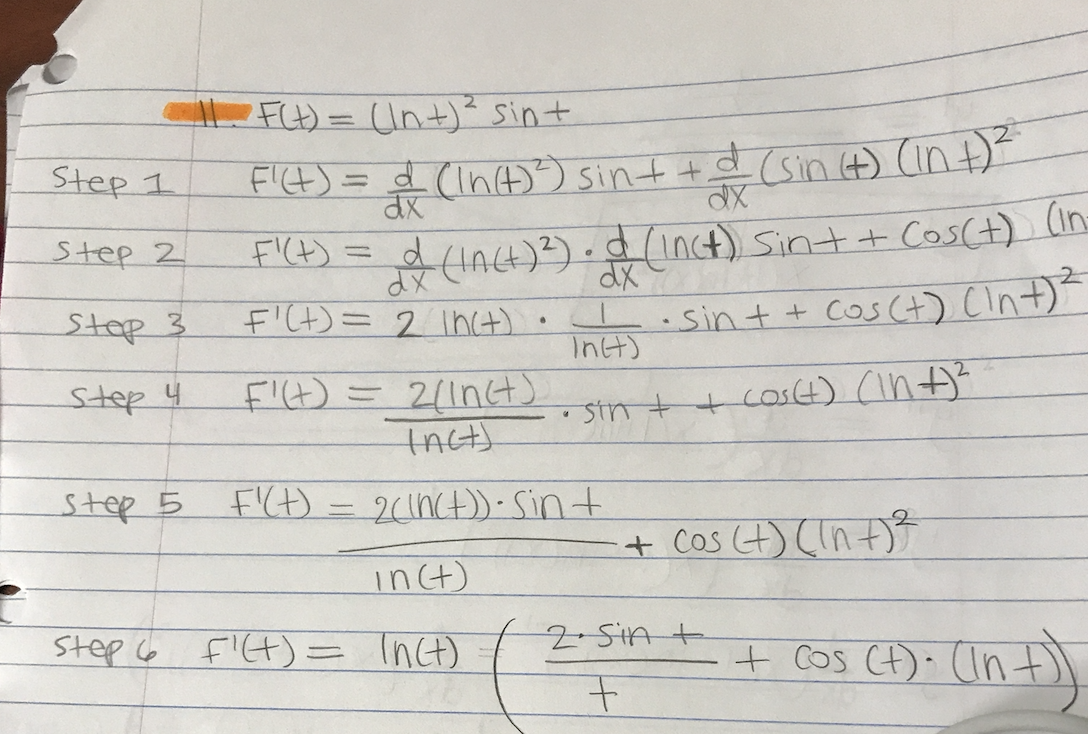 11. F(t) = (ln t)² sin t
Step 1 F'(t) = d/dx (ln(t)²) sin t + d/dx (sin (t) (ln t)²
Step 2 F'(t) = d/dx (ln(t)²) · d/dx (ln(t) sin t + cos(t) (ln
Step 3 F'(t) = 2 ln(t) · 1/ln(t) · sin t + cos(t) (ln t)²
Step 4 F'(t) = 2(ln(t)/ln(t) · sin t + cos(t) (ln t)²
Step 5 F'(t) = 2(ln(t)) · sin t / ln(t) + cos(t) (ln t)²
Step 6 F'(t) = ln(t) (2 · sin t / t + cos (t) · (ln t))